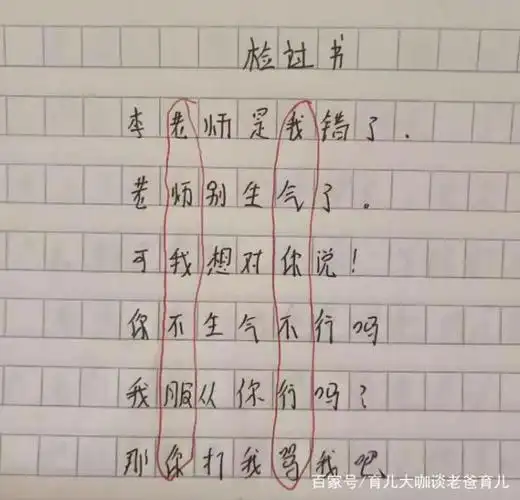 检过书
李老师是我错了.
老师别生气了。
可我想对你说!
你不生气不行吗
我服从你行吗?
那你打我骂我吧、
百家号/育儿大咖谈老爸育儿